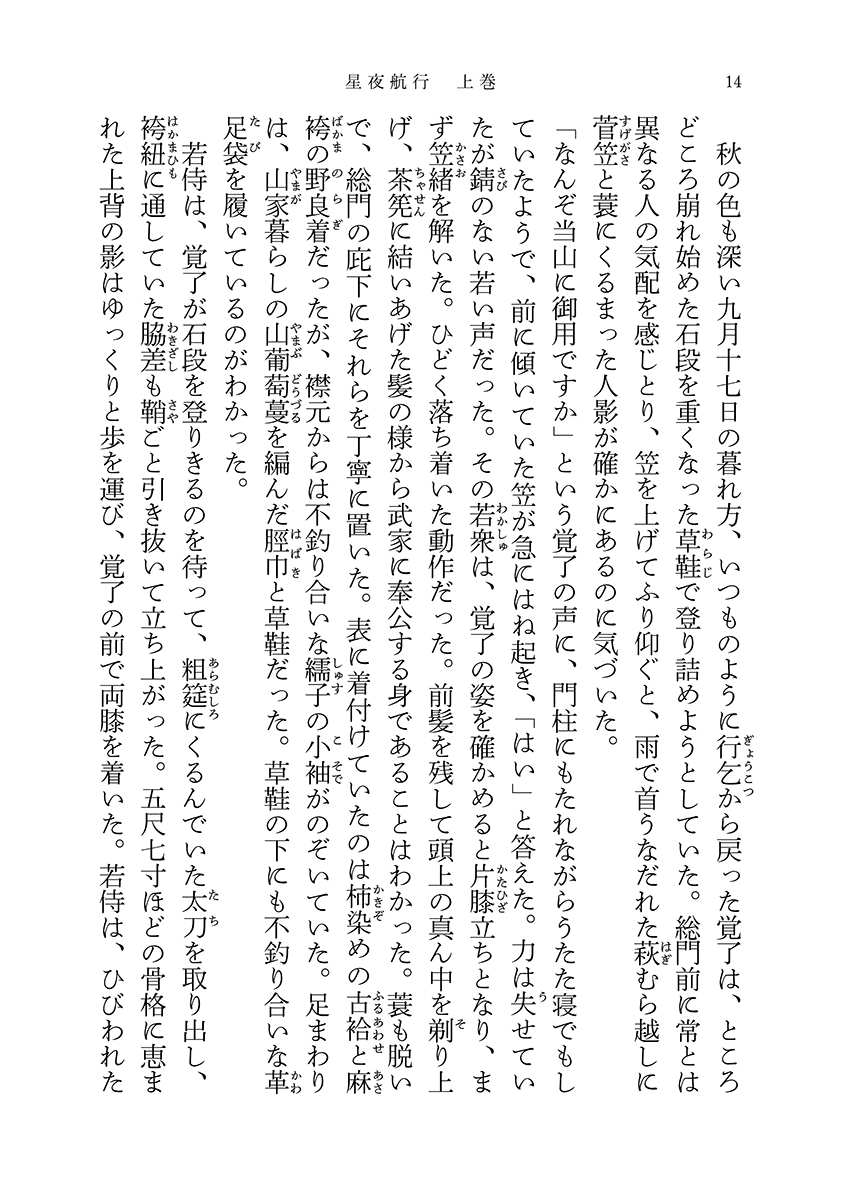 星夜航行　上巻
14
　秋の色も深い九月十七日の暮れ方、いつものように行乞から戻った覚了は、ところ
どころ崩れ始めた石段を重くなった草鞋で登り詰めようとしていた。総門前に常とは
異なる人の気配を感じとり、笠を上げてふり仰ぐと、雨で首うなだれた萩むら越しに
菅笠と蓑にくるまった人影が確かにあるのに気づいた。
「なんぞ当山に御用ですか」という覚了の声に、門柱にもたれながらうたた寝でもし
ていたようで、前に傾いていた笠が急にはね起き、「はい」と答えた。力は失せてい
たが錆のない若い声だった。その若衆は、覚了の姿を確かめると片膝立ちとなり、ま
ず笠緒を解いた。ひどく落ち着いた動作だった。前髪を残して頭上の真ん中を剃り上
げ、茶筅に結いあげた髪の様から武家に奉公する身であることはわかった。蓑も脱い
で、総門の庇下にそれらを丁寧に置いた。表に着付けていたのは柿染めの古袷と麻
袴の野良着だったが、襟元からは不釣り合いな繻子の小袖がのぞいていた。足まわり
は、山家暮らしの山葡萄蔓を編んだ脛巾と草鞋だった。草鞋の下にも不釣り合いな革
足袋を履いているのがわかった。
　若侍は、覚了が石段を登りきるのを待って、粗筵にくるんでいた太刀を取り出し、
袴紐に通していた脇差も鞘ごと引き抜いて立ち上がった。五尺七寸ほどの骨格に恵ま
れた上背の影はゆっくりと歩を運び、覚了の前で両膝を着いた。若侍は、ひびわれた